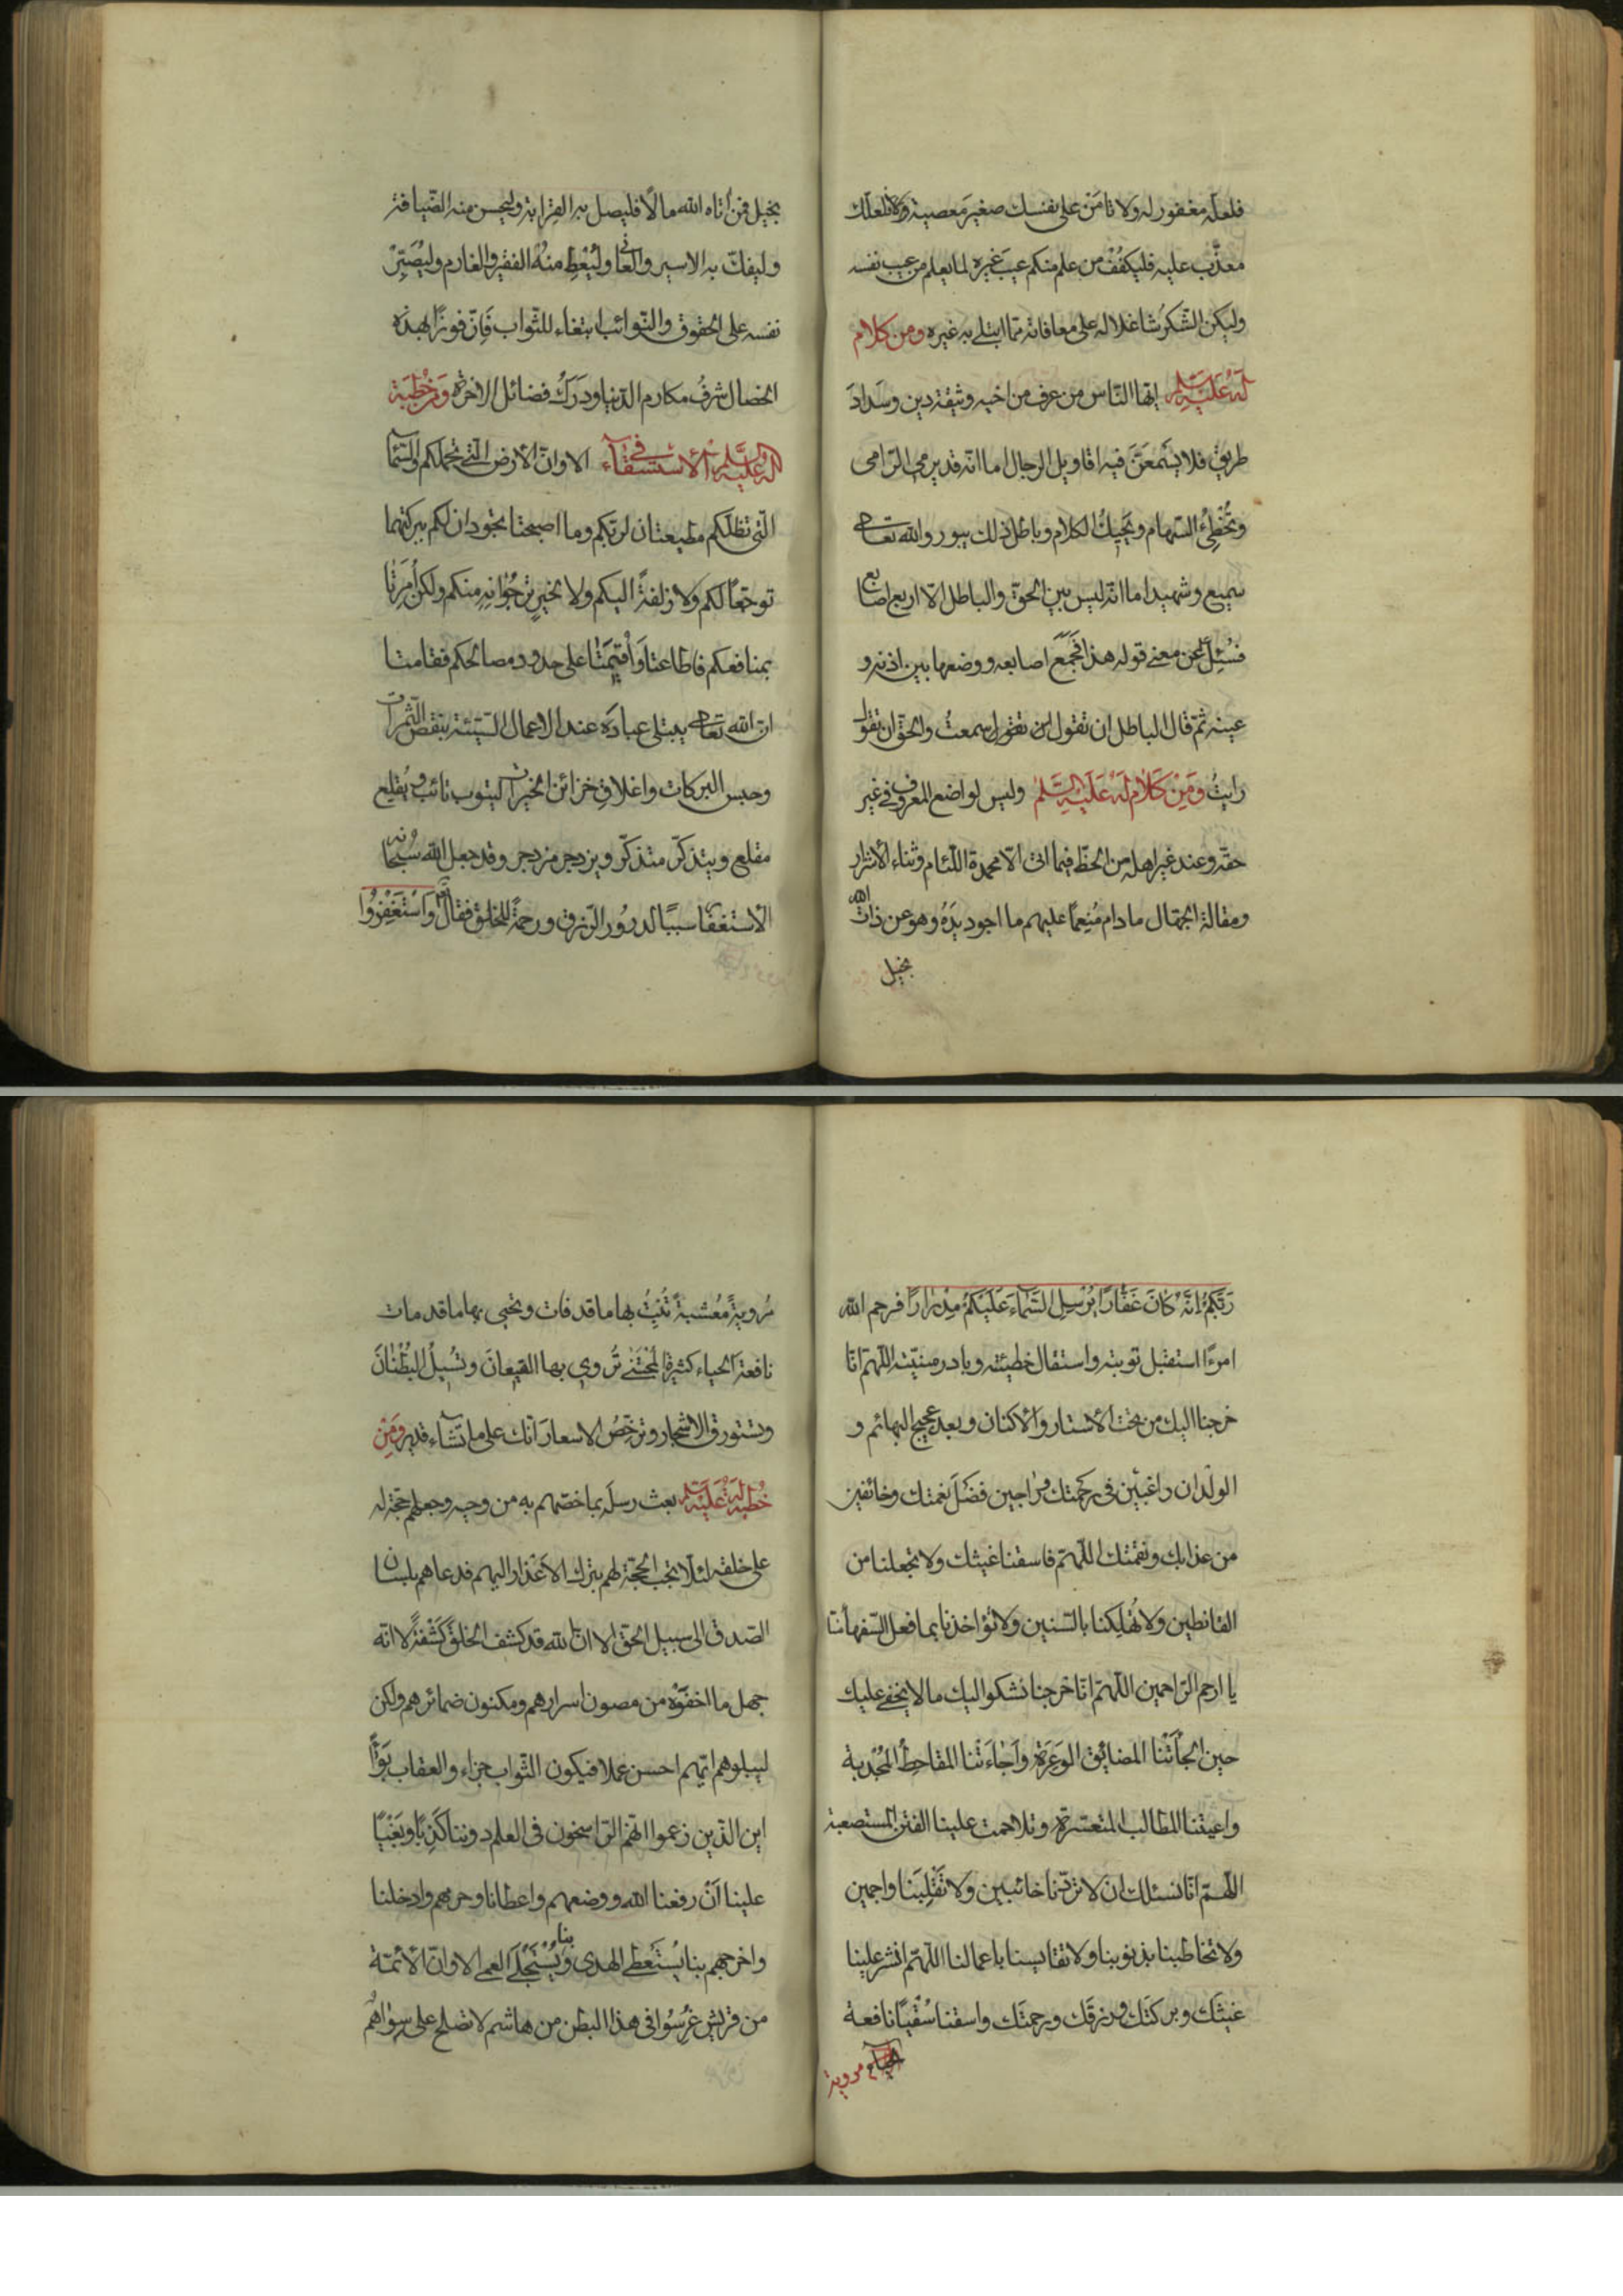 فلعله مغفور له ولا تامن على نفسك صغير معصية ولا فلعلك
معذّب عليه فليكفُف من علم منكم عيب غيره لما يعلم من عيب نفسه
وليكن الشّكر شاغلا له على معافاته ممّا ابتلى به غيره ومن كلام
له عليه السلم ايّها النّاس من عرف من اخيه وثيقة دين وسَداد
طريق فلا يسمعنّ فيه اقاويل الرجال اما انّه قد يرمى الرّامى
وتُخطِئُ السّهام ويُحِيكُ الكلام وباطل ذلك يبور والله تعالى
سميع وشهيد اما انّه ليس بين الحقّ والباطل الّا اربع اصابع
فسُئِل عن معنى قوله هذا فجَمَعَ اصابعه ووضعها بين اذنه و
عينه ثمّ قال الباطل ان تقول سمعتُ والحقّ ان تقول
رايتُ ومِن كلام له عَليه السّلم وليس لواضع المعروف فى غير
حقّه وعند غير اهله من الحظّ فيما اتى الّا محمدة اللّئام وثناء الأشرار
ومقالة الجهّال ما دام مُنعِمًا عليهم ما اجود يَدَهُ وهو عن ذات الله
بخيل
بخيل فمن أتاه الله مالًا فليصل به القرابة وليحسن منه الضّيافة
وليفكّ به الاسير والعانى وليُعْطِ منهُ الفقير والغارم وليُصَبِّرْ
نفسه على الحقوق والنّوائب ابتغاء للثّواب فَاِنّ فوزًا بهذه
الخصال شرفُ مكارم الدّنيا ودَرَكُ فضائل الاخرة وَمن خُطبَة
له عليه السلم فى الأستسقآء الا وانّ الأرض الّتى تحملكم والسّمآ
الّتى تظلّكم مطيعتان لربّكم وما اصبحتا تجودان لكم ببركتهما
توجّعًا لكم ولا زلفةً اليكم ولا لخيرٍ ترجُوانِهِ منكم ولكن أُمِرَتا
بمنافعكم فاطاعتا وَاُقيمَتا على حدود مصالحكم فقامتا
انّ الله تعالى يبتلى عبادَه عند الاعمال السّيّئة بنقص الثّمرات
وحبس البركات واغلاقِ خزائن الخيرات ليتوب تائب ويُقلِع
مقلع ويتذكّر متذكّر ويزدجر مزدجر وقد جعل الله سُبحانه
الأستغفار سببًا لدرُور الرّزق ورحمةً للخلق فقال واسْتَغفِرُوا
رَبَّكُمْ اِنَّهُ كانَ غَفّارًا يُرْسِلِ السَّمآءَ عَلَيْكُمْ مِدْرارًا فرحم الله
امرءًا استقبل توبته واستقال خطيئته وبادر منيّته اللّهمّ انّا
خرجنا اليك من تحت الأستار والأكنان وبعد عجيج البهائم و
الولدان راغبين فى رحمتك وراجين فَضْلَ نعمتك وخائفين
من عذابك ونقمتك اللّهمّ فاسقنا غيثك ولا تجعلنا من
القانطين ولا تُهْلِكنا بالسّنين ولا تُؤاخذنا بما فعل السّفهآء منّا
يا ارحم الرّاحمين اللّهمّ انّا خرجنا نشكو اليك ما لا يخفى عليك
حين الجأَتْنا المضايق الوَعِرَة وَاَجاءَتْنا المقاحِطُ المُجْدبة
واعيتنا المطالب المتعسّرة وتلاحمت علينا الفتن المستصعبة
اللّهمّ انّا نسئلك ان لا تردّنا خائبين ولا تَقْلِبَنا واجمين
ولا تخاطبنا بذنوبنا ولا تقايسنا باعمالنا اللّهمّ انشر علينا
غيثَك وبركتَك ورزقَك ورحمتَك واسقنا سُقْيًا نافعة
مروية
مُرويةً مُعْشبةً تُنْبِتُ بها ما قد فات وتحيى بها ما قد مات
نافعة الحياء كثيرة المُجْتَنى تُروى بها القيعانَ وتُسيلُ البُطْنانَ
وتستورق الاشجار وترخّصُ الاسعارَ انّك على ما تشآء قدير ومن
خُطبةٍ لَهُ عَلَيْه السلم بعث رسلَه بما خصّهم به من وحيه وجعلهم حجّة له
على خلقه لئلّا تجب الحجّة لهم بترك الاعْذار اليهم فدعاهم بلسان
الصّدق الى سبيل الحقّ الا انّ الله قد كشف الخلق كَشْفةً لا انّه
جهل ما اخفَوْه من مصون اسرارهم ومكنون ضمائرهم ولكن
ليبلوهم ايّهم احسن عملا فيكون الثّواب جزاء والعقاب بَوَآءً
اين الذّين زعموا انّهم الرّاسخون فى العلم دوننا كَذِبًا وبَغْيًا
علينا اَنْ رفعنا الله ووضعهم واعطانا وحرمهم وادخلنا
واخرجهم بنا يُستَعْطى الهدى وبنا يُسْتَجْلَى العمى الا وانّ الأئمّة
من قريش غُرِسُوا فى هذا البطن من هاشم لا تصلح على سِواهُم